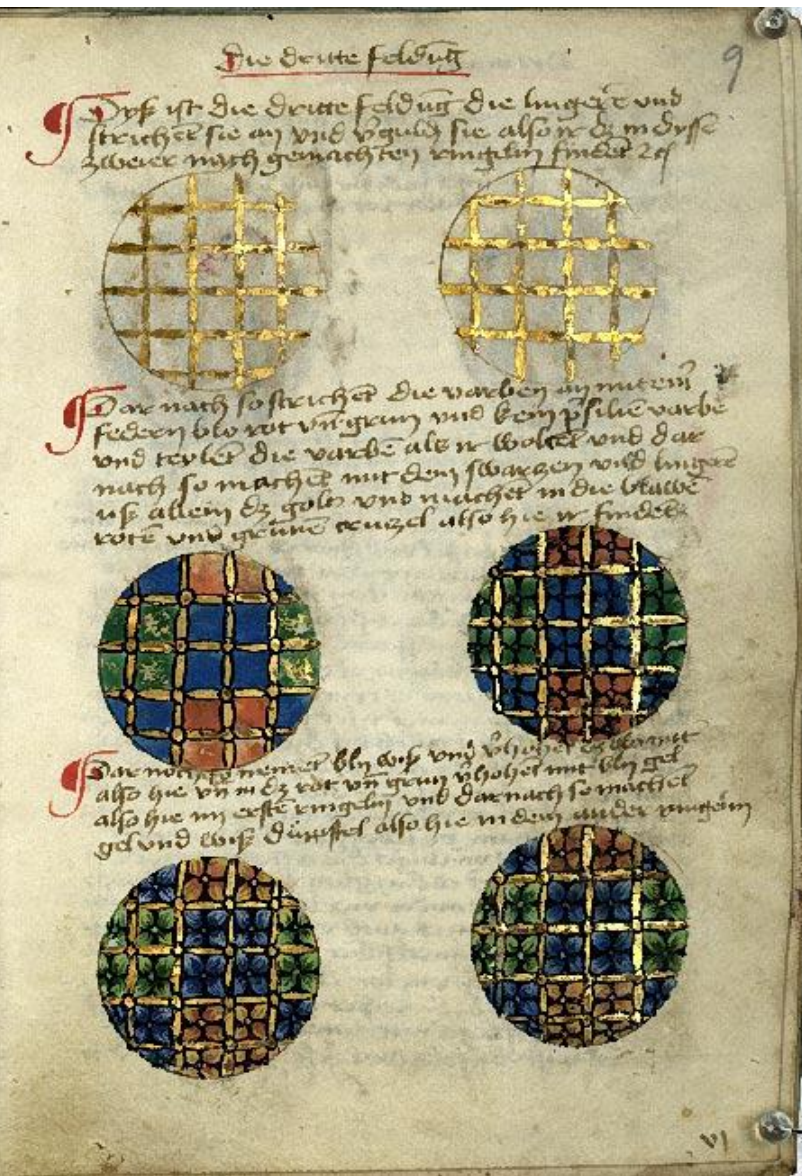 Die dritte feldūg
9
Dyß ist die dritte feldūg die lingerē und
strichet sie an und vguld sie also ir dz in dysse
zweier nach gemachten ringelin findet
Dar nach so strichet die varben an mit einr
federn blo rot vn̄ grun und kein psilien varbe
und teylet die varbē als ir wollet und dar
nach so machet mit dem swarzen und lingerē
uß allein dz golt und machet in die blawē
rotē und grünē cruzel also hie ir findet
Dar noch nemet bly wiß und vhohet dz blo mit
also hie vn̄ dz rot vn̄ grun vhohet mit bly gel
also hie im erstē ringelin und dar nach so machet
gel und wiß düpffel also hie in dem ander ringelin
VI